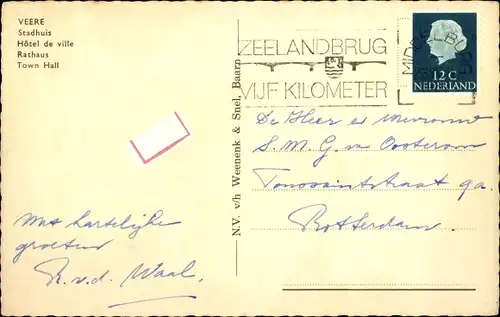 VEERE
Stadhuis
Hôtel de ville
Rathaus
Town Hall
ZEELANDBRUG
VIJF KILOMETER
MIDDELBURG
12 C
NEDERLAND
N.V. v/h Weenenk & Snel, Baarn
De Heer en Mevrouw
S. M. G. v. Oosterom
Toussaintstraat 9a.
Rotterdam.
Met hartelijke
groeten
R. v. d. Waal.